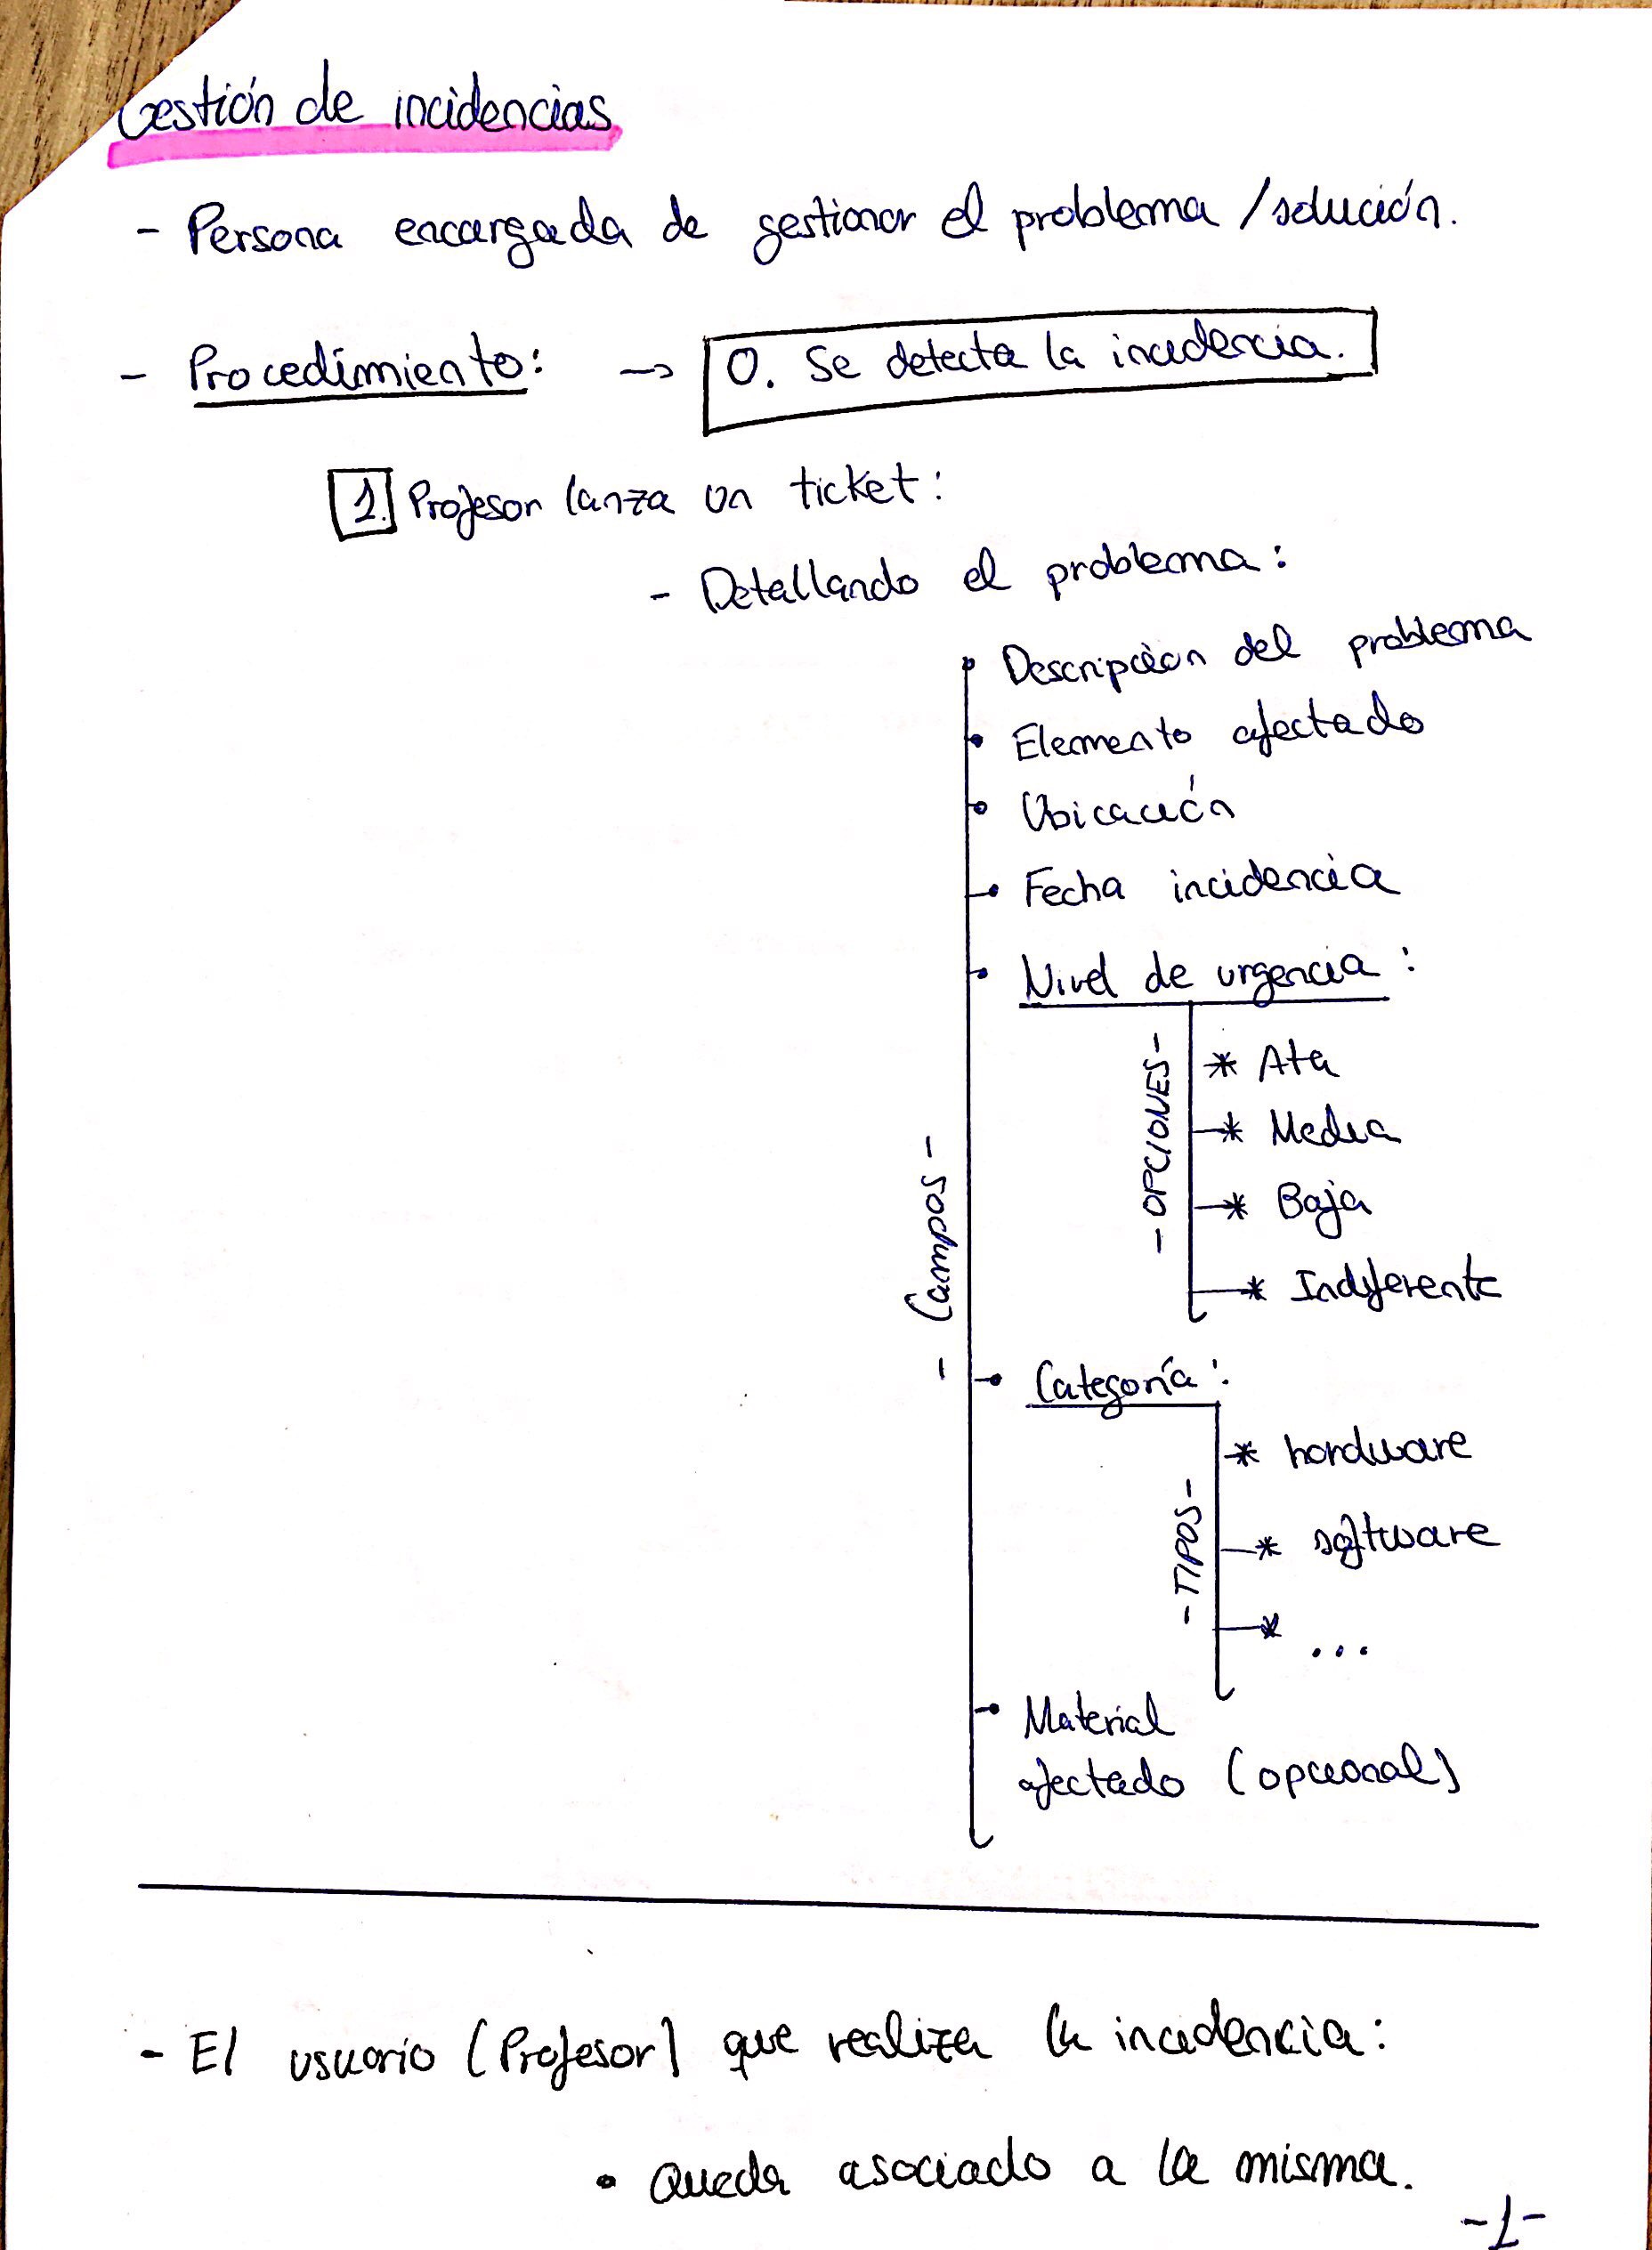 Gestión de incidencias
- Persona encargada de gestionar el problema / solución.
- Procedimiento: → 0. Se detecta la incidencia.
1. Profesor lanza un ticket:
- Detallando el problema:
- Campos -
• Descripción del problema
• Elemento afectado
• Ubicación
• Fecha incidencia
• Nivel de urgencia:
- OPCIONES -
* Alta
* Media
* Baja
* Indiferente
• Categoría:
- TIPOS -
* hardware
* software
* ...
• Material
afectado (opcional)
- El usuario (Profesor) que realiza la incidencia:
• Queda asociado a la misma.
-1-